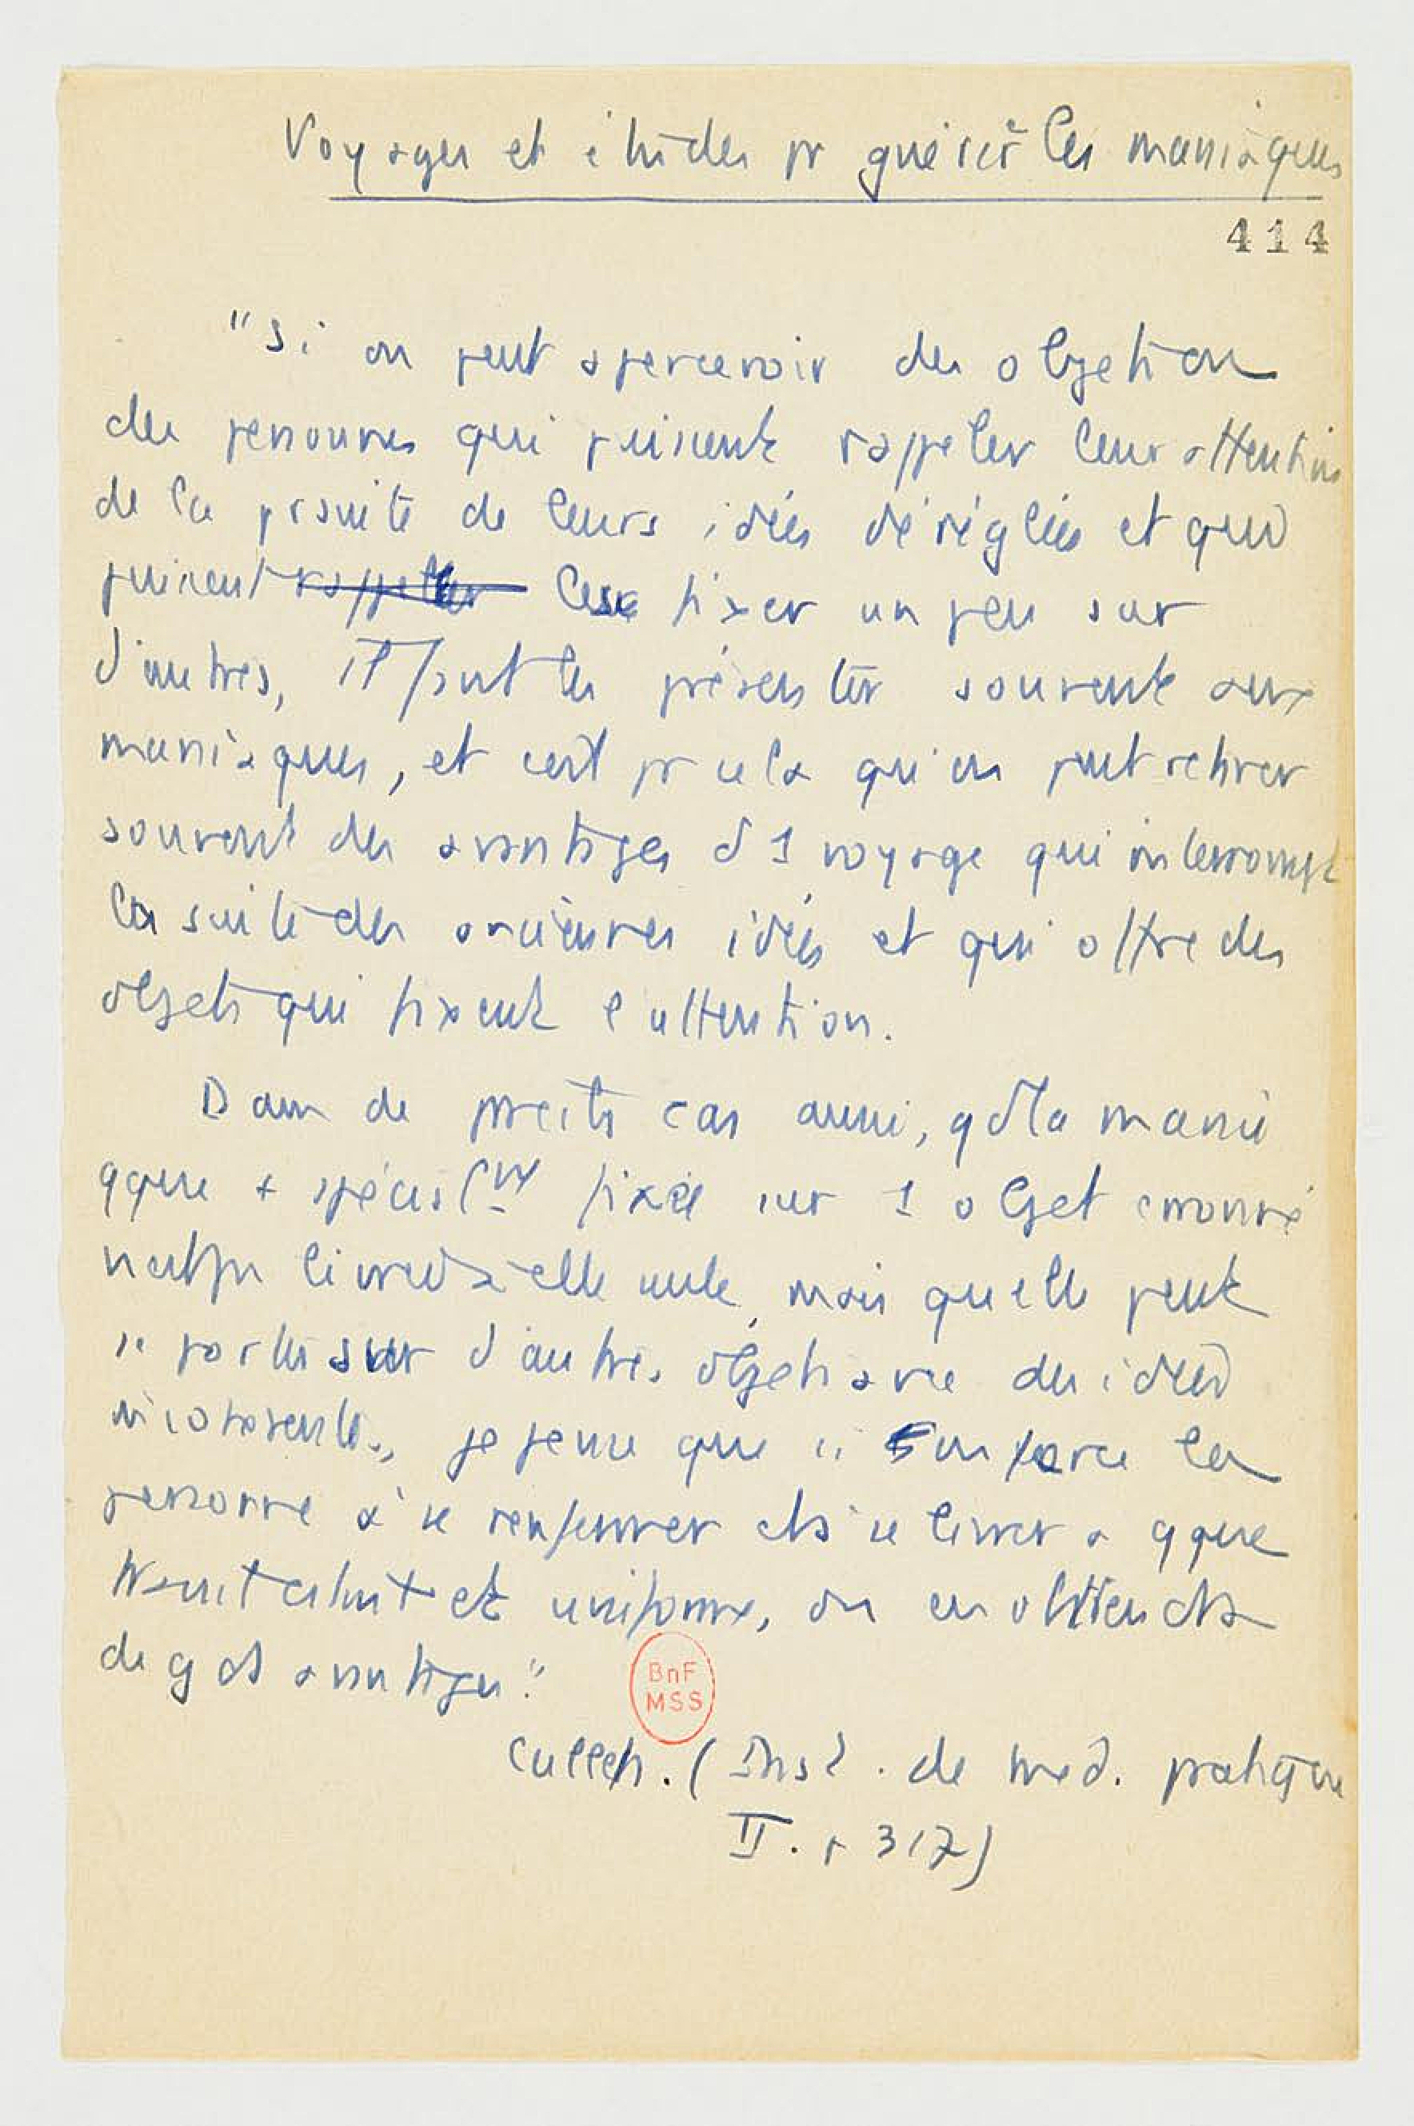 Voyages et études pr guérir les maniaques
414
"Si on peut apercevoir des objets ou
des personnes qui puissent rappeler leur attention
de la prsuite de leurs idées déréglées et qui
puissent rappeler les fixer un peu sur
d'autres, il faut les présenter souvent aux
maniaques, et c'est pr cela qu'on peut retirer
souvent des avantages d'1 voyage qui interrompt
la suite des anciennes idées et qui offre des
objets qui fixent l'attention.
Dans de parts cas aussi, qd la manie
qque + spécialmt fixée sur 1 objet erronné
n'est pas livrée à elle seule, mais qu'elle peut
se porter sur d'autres objets avec des idées
incohérentes, je pense que si on force la
personne à se renfermer et à se livrer à qque
travail et uniforme, on en obtiendra
de gds avantages."
Cullen. (Inst. de méd. pratique
II. p 317)
BnF
MSS